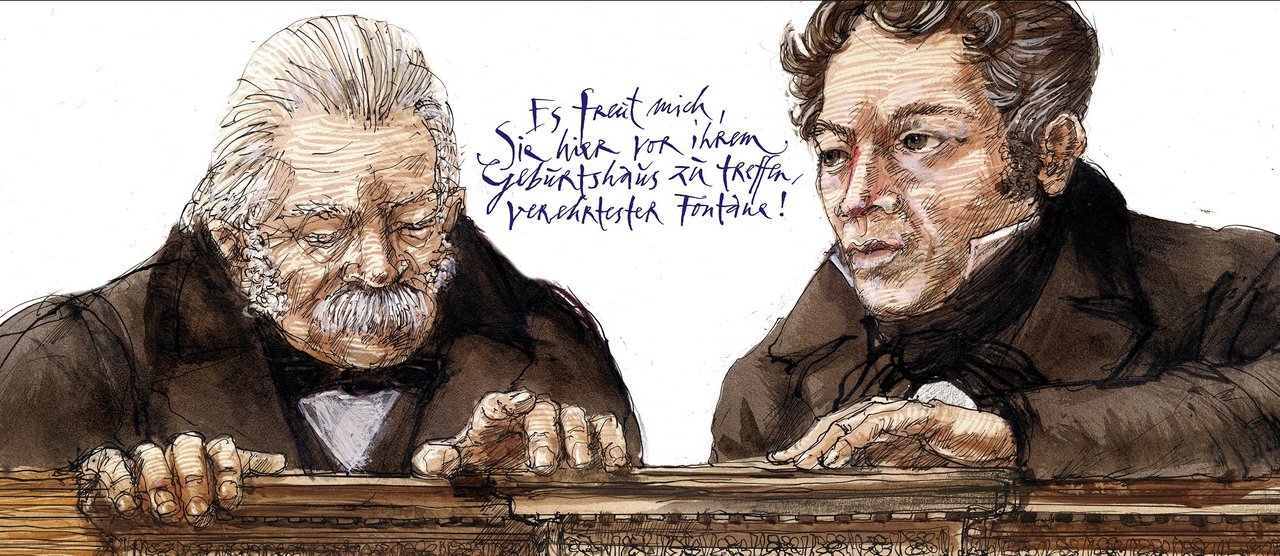 Es freut mich,
Sie hier vor ihrem
Geburtshaus zu treffen,
verehrtester Fontane!